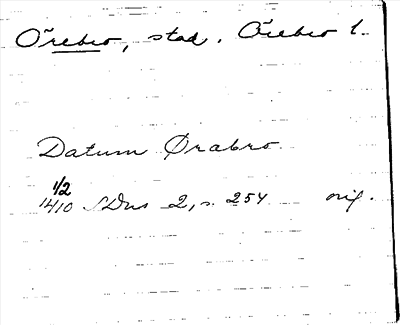 Örebro, stad. Örebro l.
Datum Ørabro
1/2
1410 SDns 2, s. 254 orig.